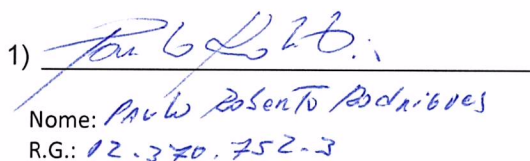 1) Paulo Roberto
Nome: Paulo Roberto Rodrigues
R.G.: 12.370.752-3